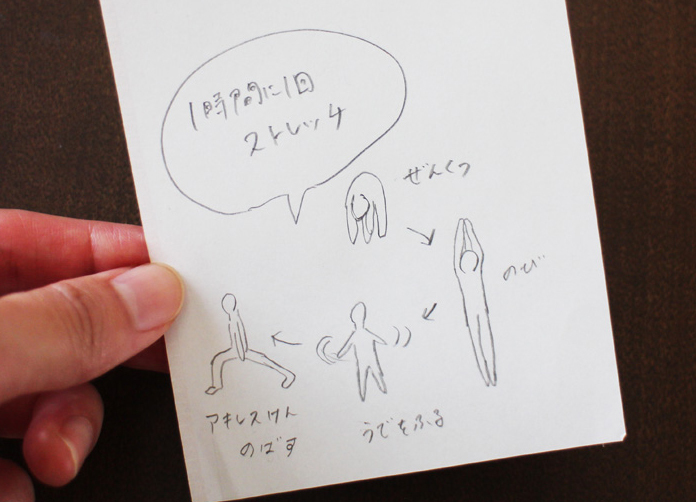 1時間に1回
ストレッチ
ぜんくつ
のび
うでをふる
アキレスけん
のばす